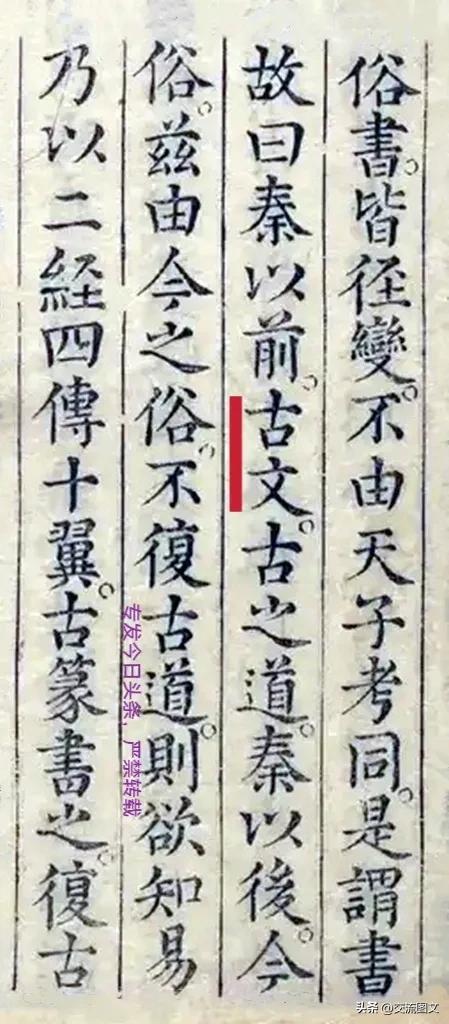 俗書。皆径變。不由天子考同。是謂書
故曰秦以前。古文。古之道。秦以後。今
俗。茲由今之俗。不復古道。則欲知易
乃以二経四傳十翼。古篆書之。復古
专发今日头条，严禁转载
头条 @交流图文